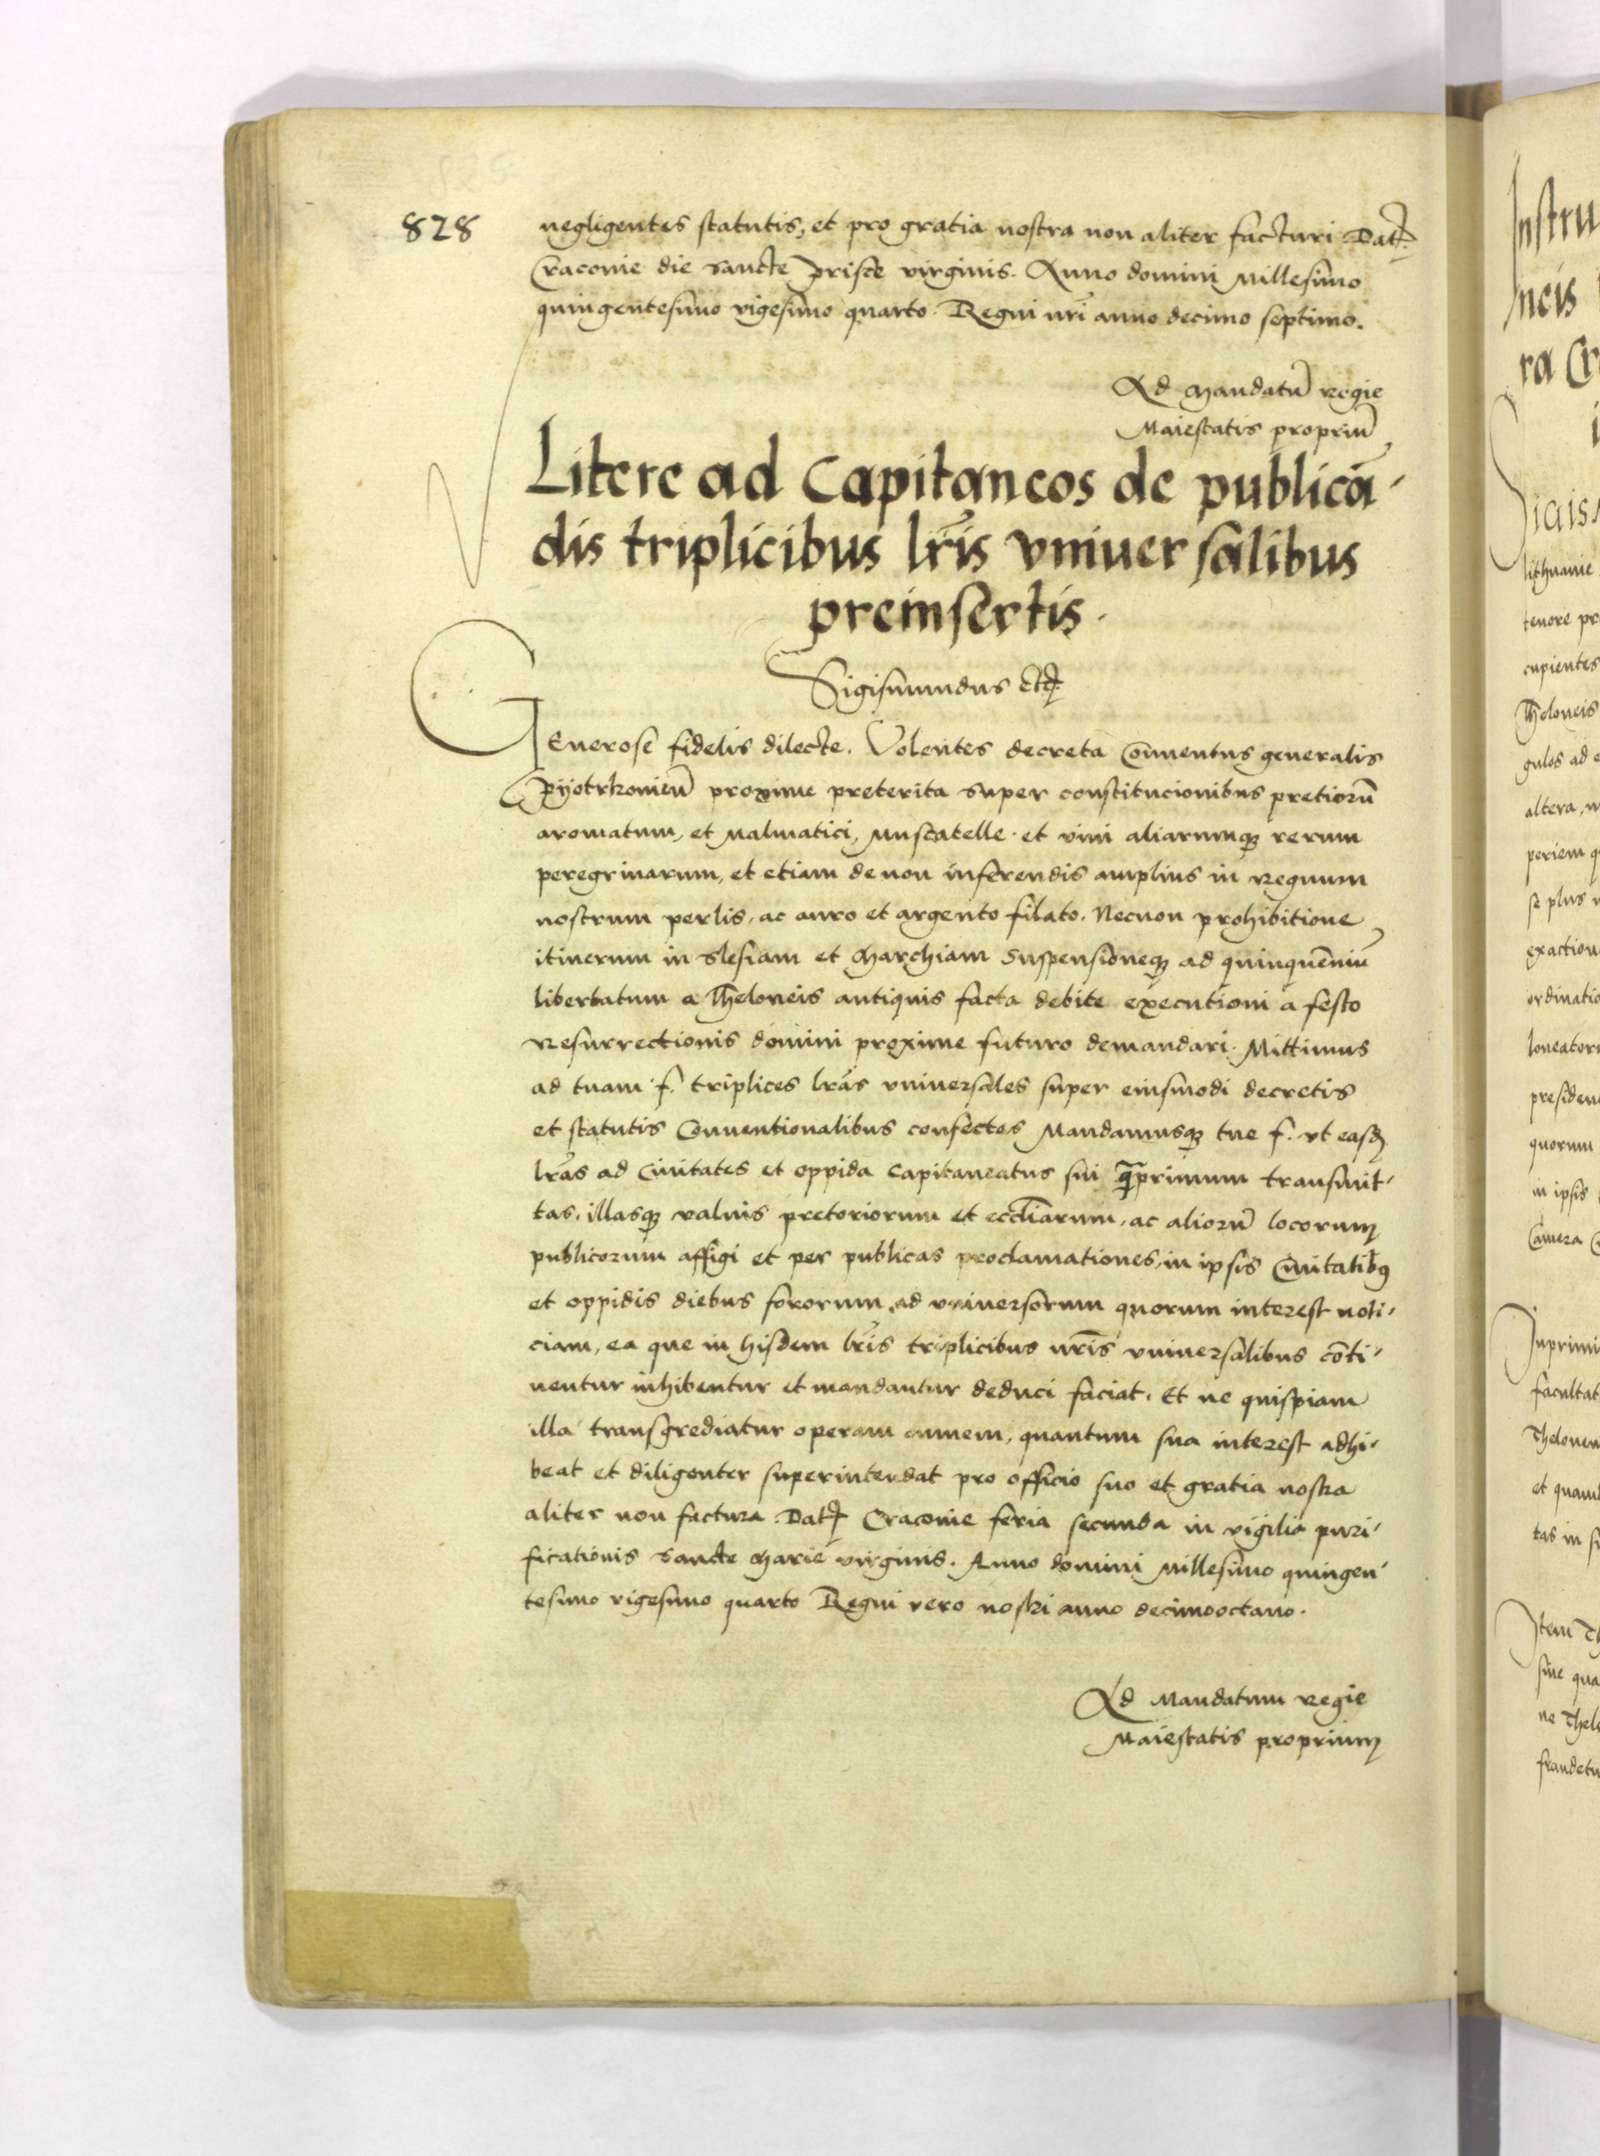 828
negligentes statutis, et pro gratia nostra non aliter facturi. Dat.
Cracovie die sancte Prisce virginis. Anno domini Millesimo
quingentesimo vigesimo quarto. Regni nri anno decimo septimo.
Ad Mandatū regie
Maiestatis propriū
Litere ad Capitaneos de publicā-
dis triplicibus lris vniuersalibus
preinsertis.
Sigismundus etc.
GEnerose fidelis dilecte. Volentes decreta Conuentus generalis
Pyotrkouien̄ proxime preterita super constitucionibus pretiorū
aromatum, et Malmatici, Muscatelle et vini aliarumq̄ rerum
peregrinarum, et etiam de non inferendis amplius in regnum
nostrum perlis, ac auro et argento filato. Necnon prohibitione
itinerum in Slesiam et Marchiam Suspensioneq̄ ad quinquēniū
libertatum a Theloneis antiquis facta debite executioni a festo
resurrectionis domini proxime futuro demandari. Mittimus
ad tuam f. triplices lras vniuersales super eiusmodi decretis
et statutis Conuentionalibus confectas Mandamusq̄ tue f. vt easd.
lras ad Ciuitates et oppida Capitaneatus sui q̄primum transmit-
tas, illasq̄ valuis pretoriorum et eccliarum, ac aliorū locorum
publicorum affigi et per publicas proclamationes, in ipsis Ciuitatibus
et oppidis diebus fororum, ad vniuersorum quorum interest noti-
ciam, ea que in hisdem lris triplicibus nris vniuersalibus cōti-
nentur inhibentur et mandantur deduci faciat. Et ne quispiam
illa transgrediatur operam omnem, quantum sua interest adhi-
beat et diligenter superintendat pro officio suo et gratia nostra
aliter non factura. Dat. Cracovie feria secunda in vigilia puri-
ficationis sancte Marie virginis. Anno domini Millesimo quingen-
tesimo vigesimo quarto Regni vero nostri anno decimooctauo.
Ad Mandatum regie
Maiestatis proprium
Instru
ncis
ra Cr
Sigis
lithuanie
tenore pr
cupientes
Theloneis
gulos ad e
altera,
periem q
se plus
exaction
ordinatio
loneator
presiden
quorum
in ipsis
Camera
Inprimi
facultat
Thelonen
et quam
tas in si
Item Th
siue qua
ne Thel
fraudetu